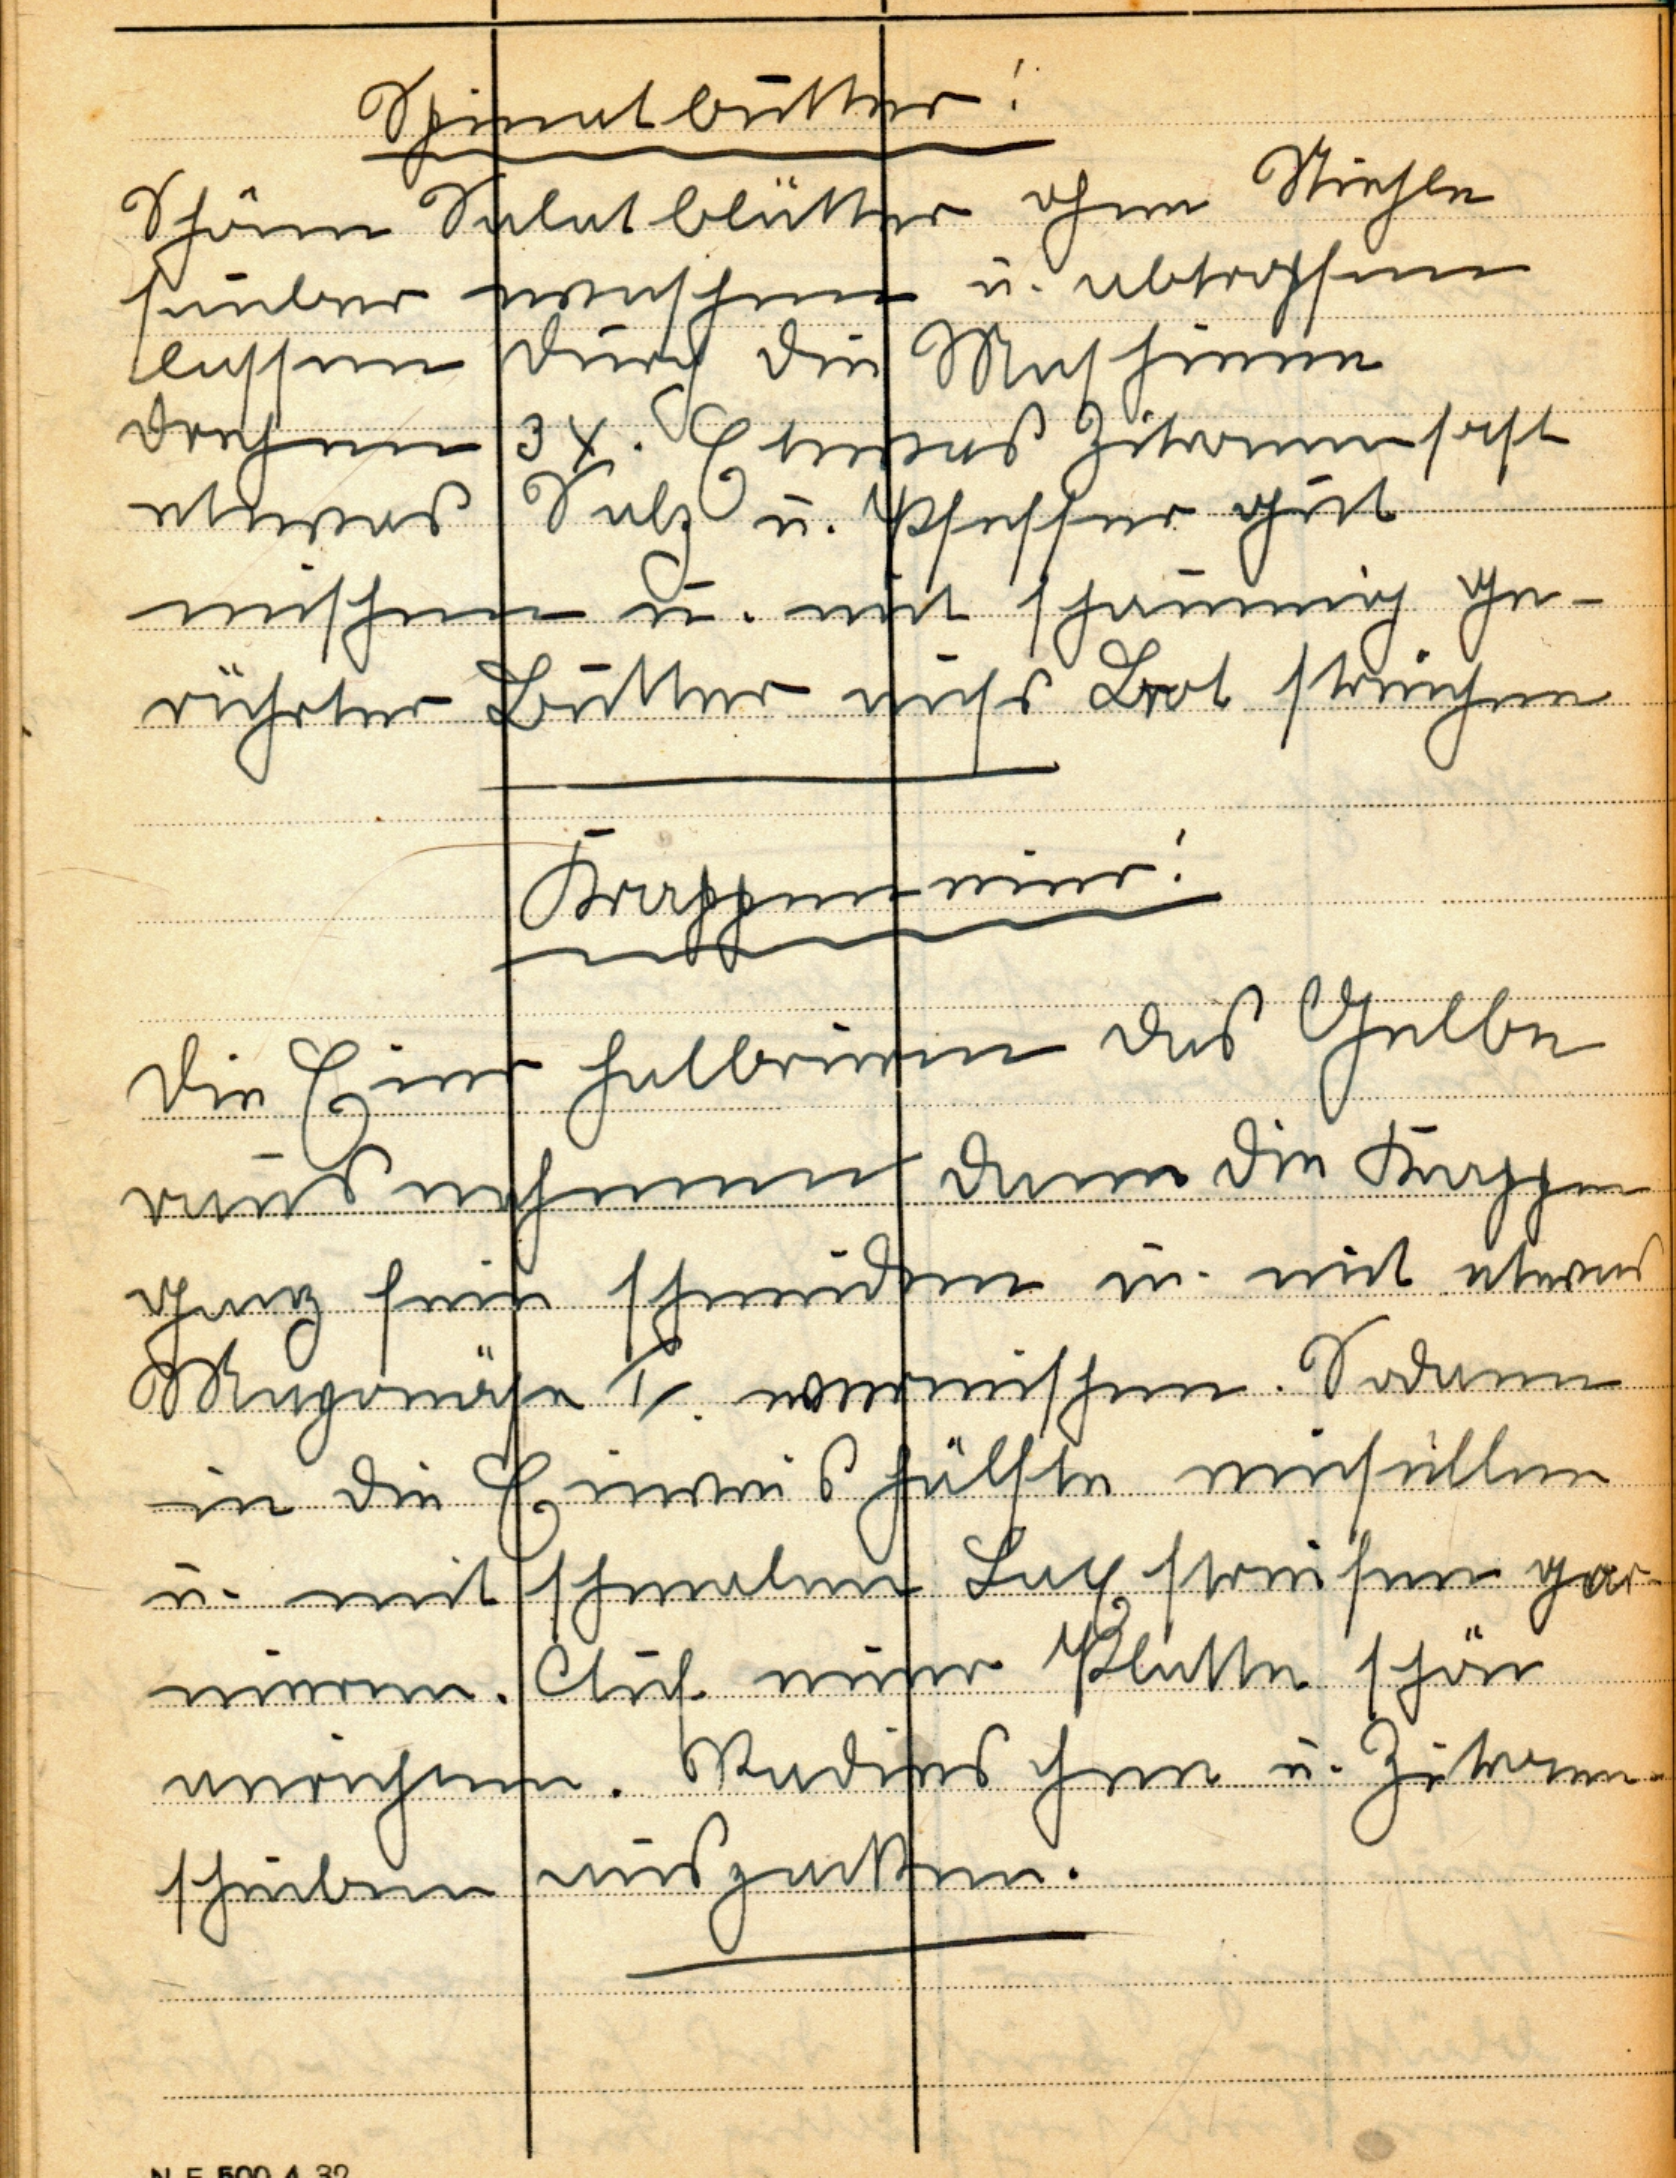 Spinatbutter!
Schöne Salatblätter ohne Stiehle
sauber waschen u. abtropfen
lassen durch die Maschinne
drehen 3 X. Etwas Zitronensaft
etwas Salz u. Pfeffer gut
mischen u. mit schaumig ge-
rührter Butter aufs Brot streichen
Krappeneier!
Die Eier halbieren das Gelbe
rausnehmen dann die Kappen
ganz fein schneiden u. mit etwas
Mayonäse vermischen. Sodann
in die Eiweishälfte einfüllen
u. mit schmalen Lachsstreifen gar-
nieren. Auf einer Platte schön
anrichen. Radieschen u. Zitronen-
scheiben auszacken.
N E 500 4 32